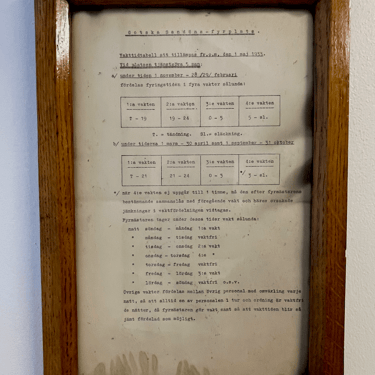 Gotska Sandöns fyrplats.
Vakttidtabell att tillämpas fr.o.m. den 1 maj 1953.
Vid platsen tjänstgöra 5 man.
a/ under tiden 1 november - 28/29/ februari
fördelas fyringstiden i fyra vakter sålunda:
1:a vakten 2:a vakten 3:e vakten 4:e vakten
T. - 19 19 - 24 0 - 5 5 - sl.
T. = tändning. Sl. = släckning.
b/ under tiderna 1 mars - 30 april samt 1 september - 31 oktober
1:a vakten 2:a vakten 3:e vakten 4:e vakten
T. - 21 21 - 24 0 - 3 */ 3 - sl.
*/ när 4:e vakten ej uppgår till 1 timme, må den efter fyrmästarens
bestämmande sammanslås med föregående vakt och härav
jämkningar i vaktfördelningen vidtagas.
Fyrmästaren tager under dessa tider vakt sålunda:
natt söndag - måndag 1:a vakt
" måndag - tisdag vaktfri
" tisdag - onsdag 2:a vakt
" onsdag - torsdag 1:a "
" torsdag - fredag vaktfri
" fredag - lördag 3:a vakt
" lördag - söndag vaktfri o.s.v.
Övriga vakter fördelas mellan övrig personal med omväxling varje
natt, så att alltid en av personalen i tur och ordning är vaktfri
de nätter, då fyrmästaren gör vakt samt så att vakttiden blir så
jämt fördelad som möjligt.